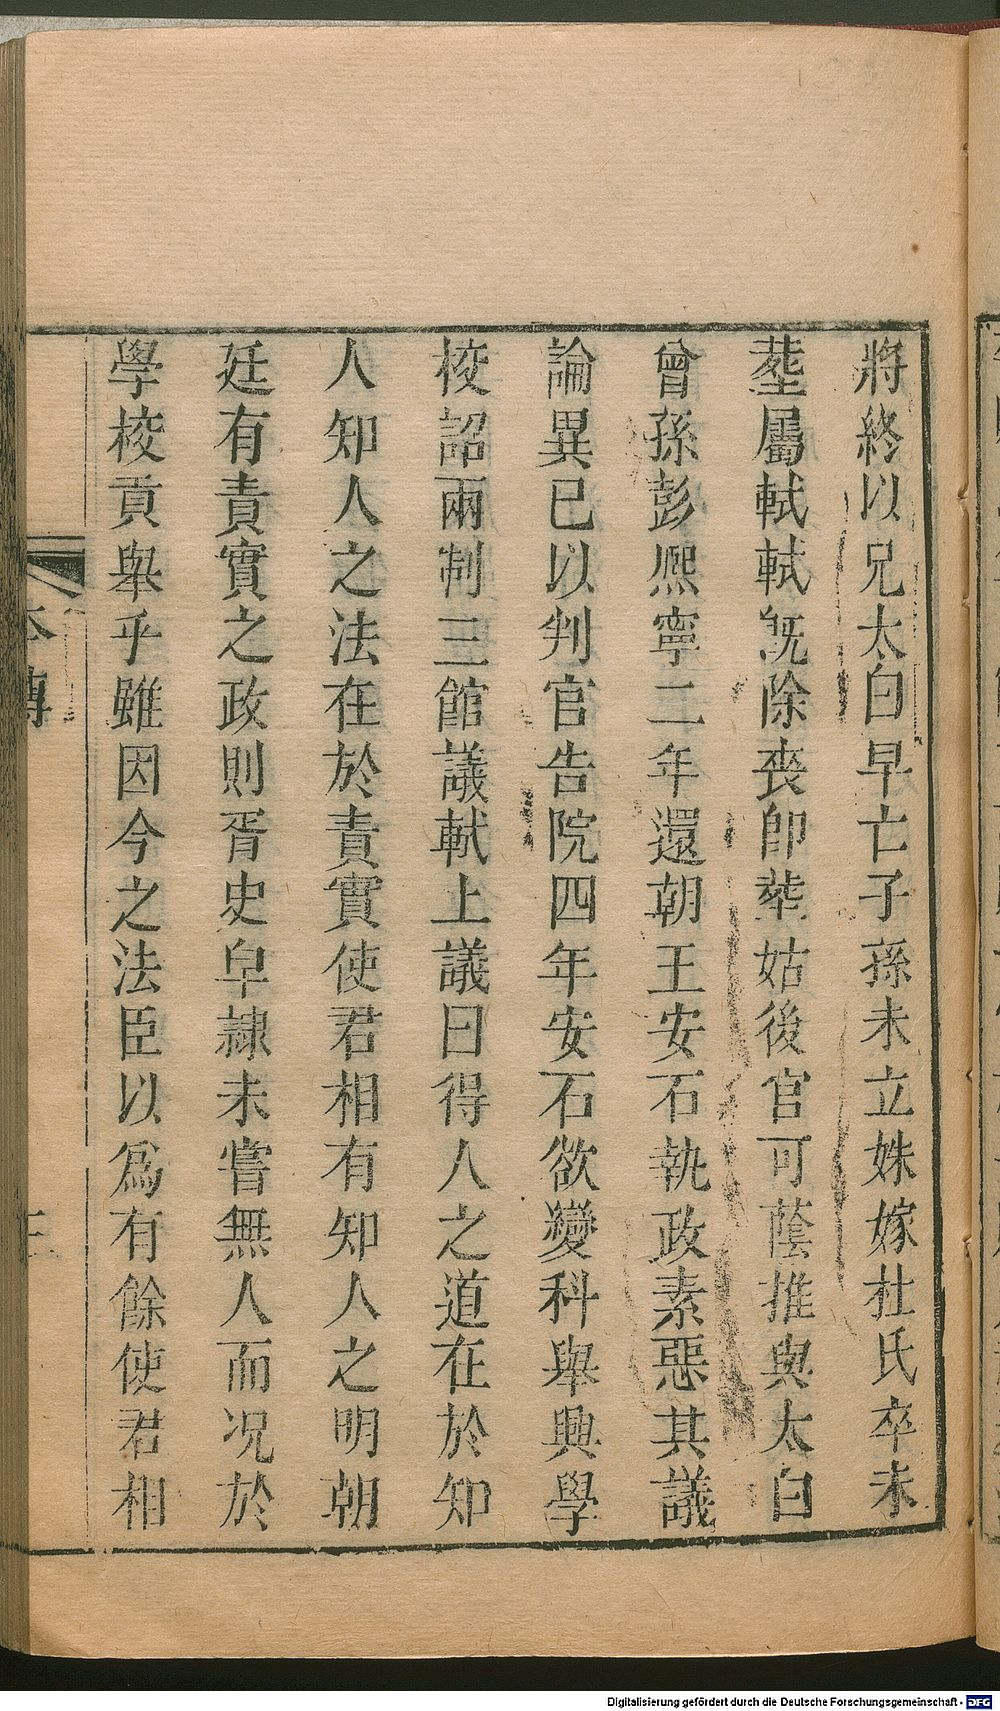 將終以兄太白早亡子孫未立姝嫁杜氏卒未
塟屬軾軾旣除喪卽塟姑後官可蔭推與太白
曾孫彭熈寧二年還朝王安石執政素惡其議
論異已以判官告院四年安石欲變科舉興學
校詔兩制三館議軾上議曰得人之道在於知
人知人之法在於責實使君相有知人之明朝
廷有責實之政則胥史皁隷未嘗無人而况於
學校貢舉乎雖因今之法臣以爲有餘使君相
本傳
Digitalisierung gefördert durch die Deutsche Forschungsgemeinschaft - DFG